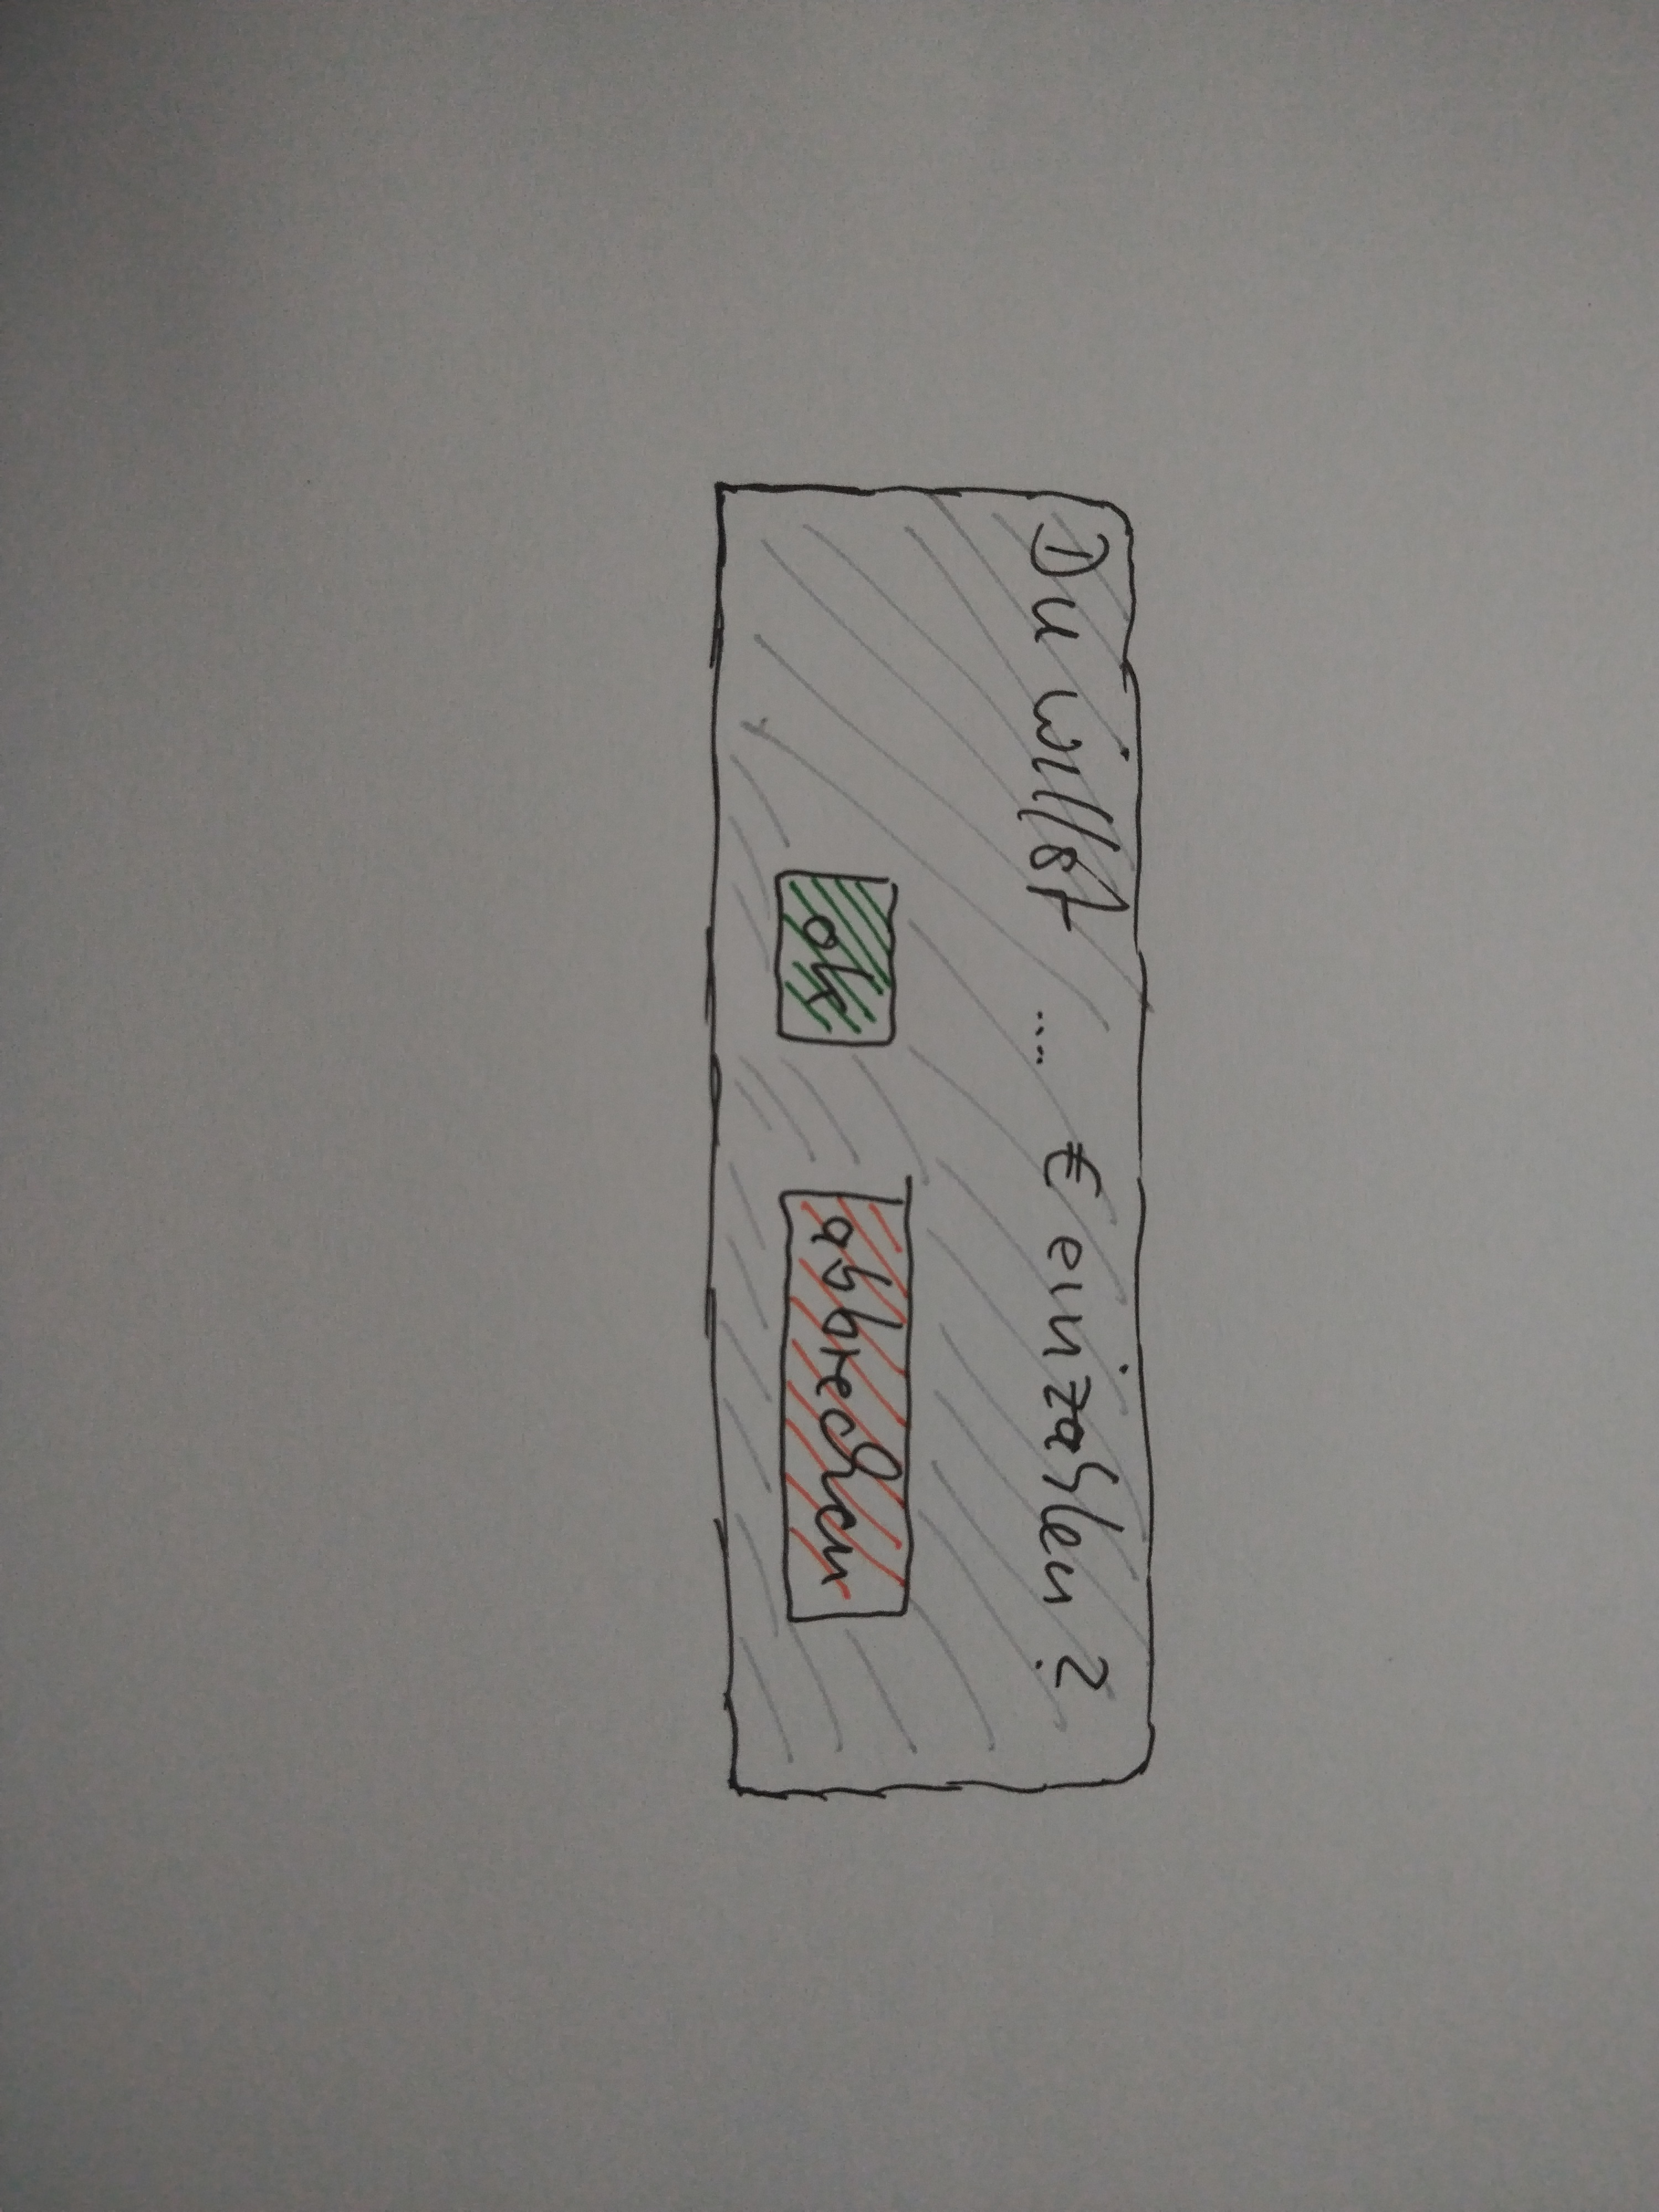 Du willst .... € einzahlen?
ok abbrechen